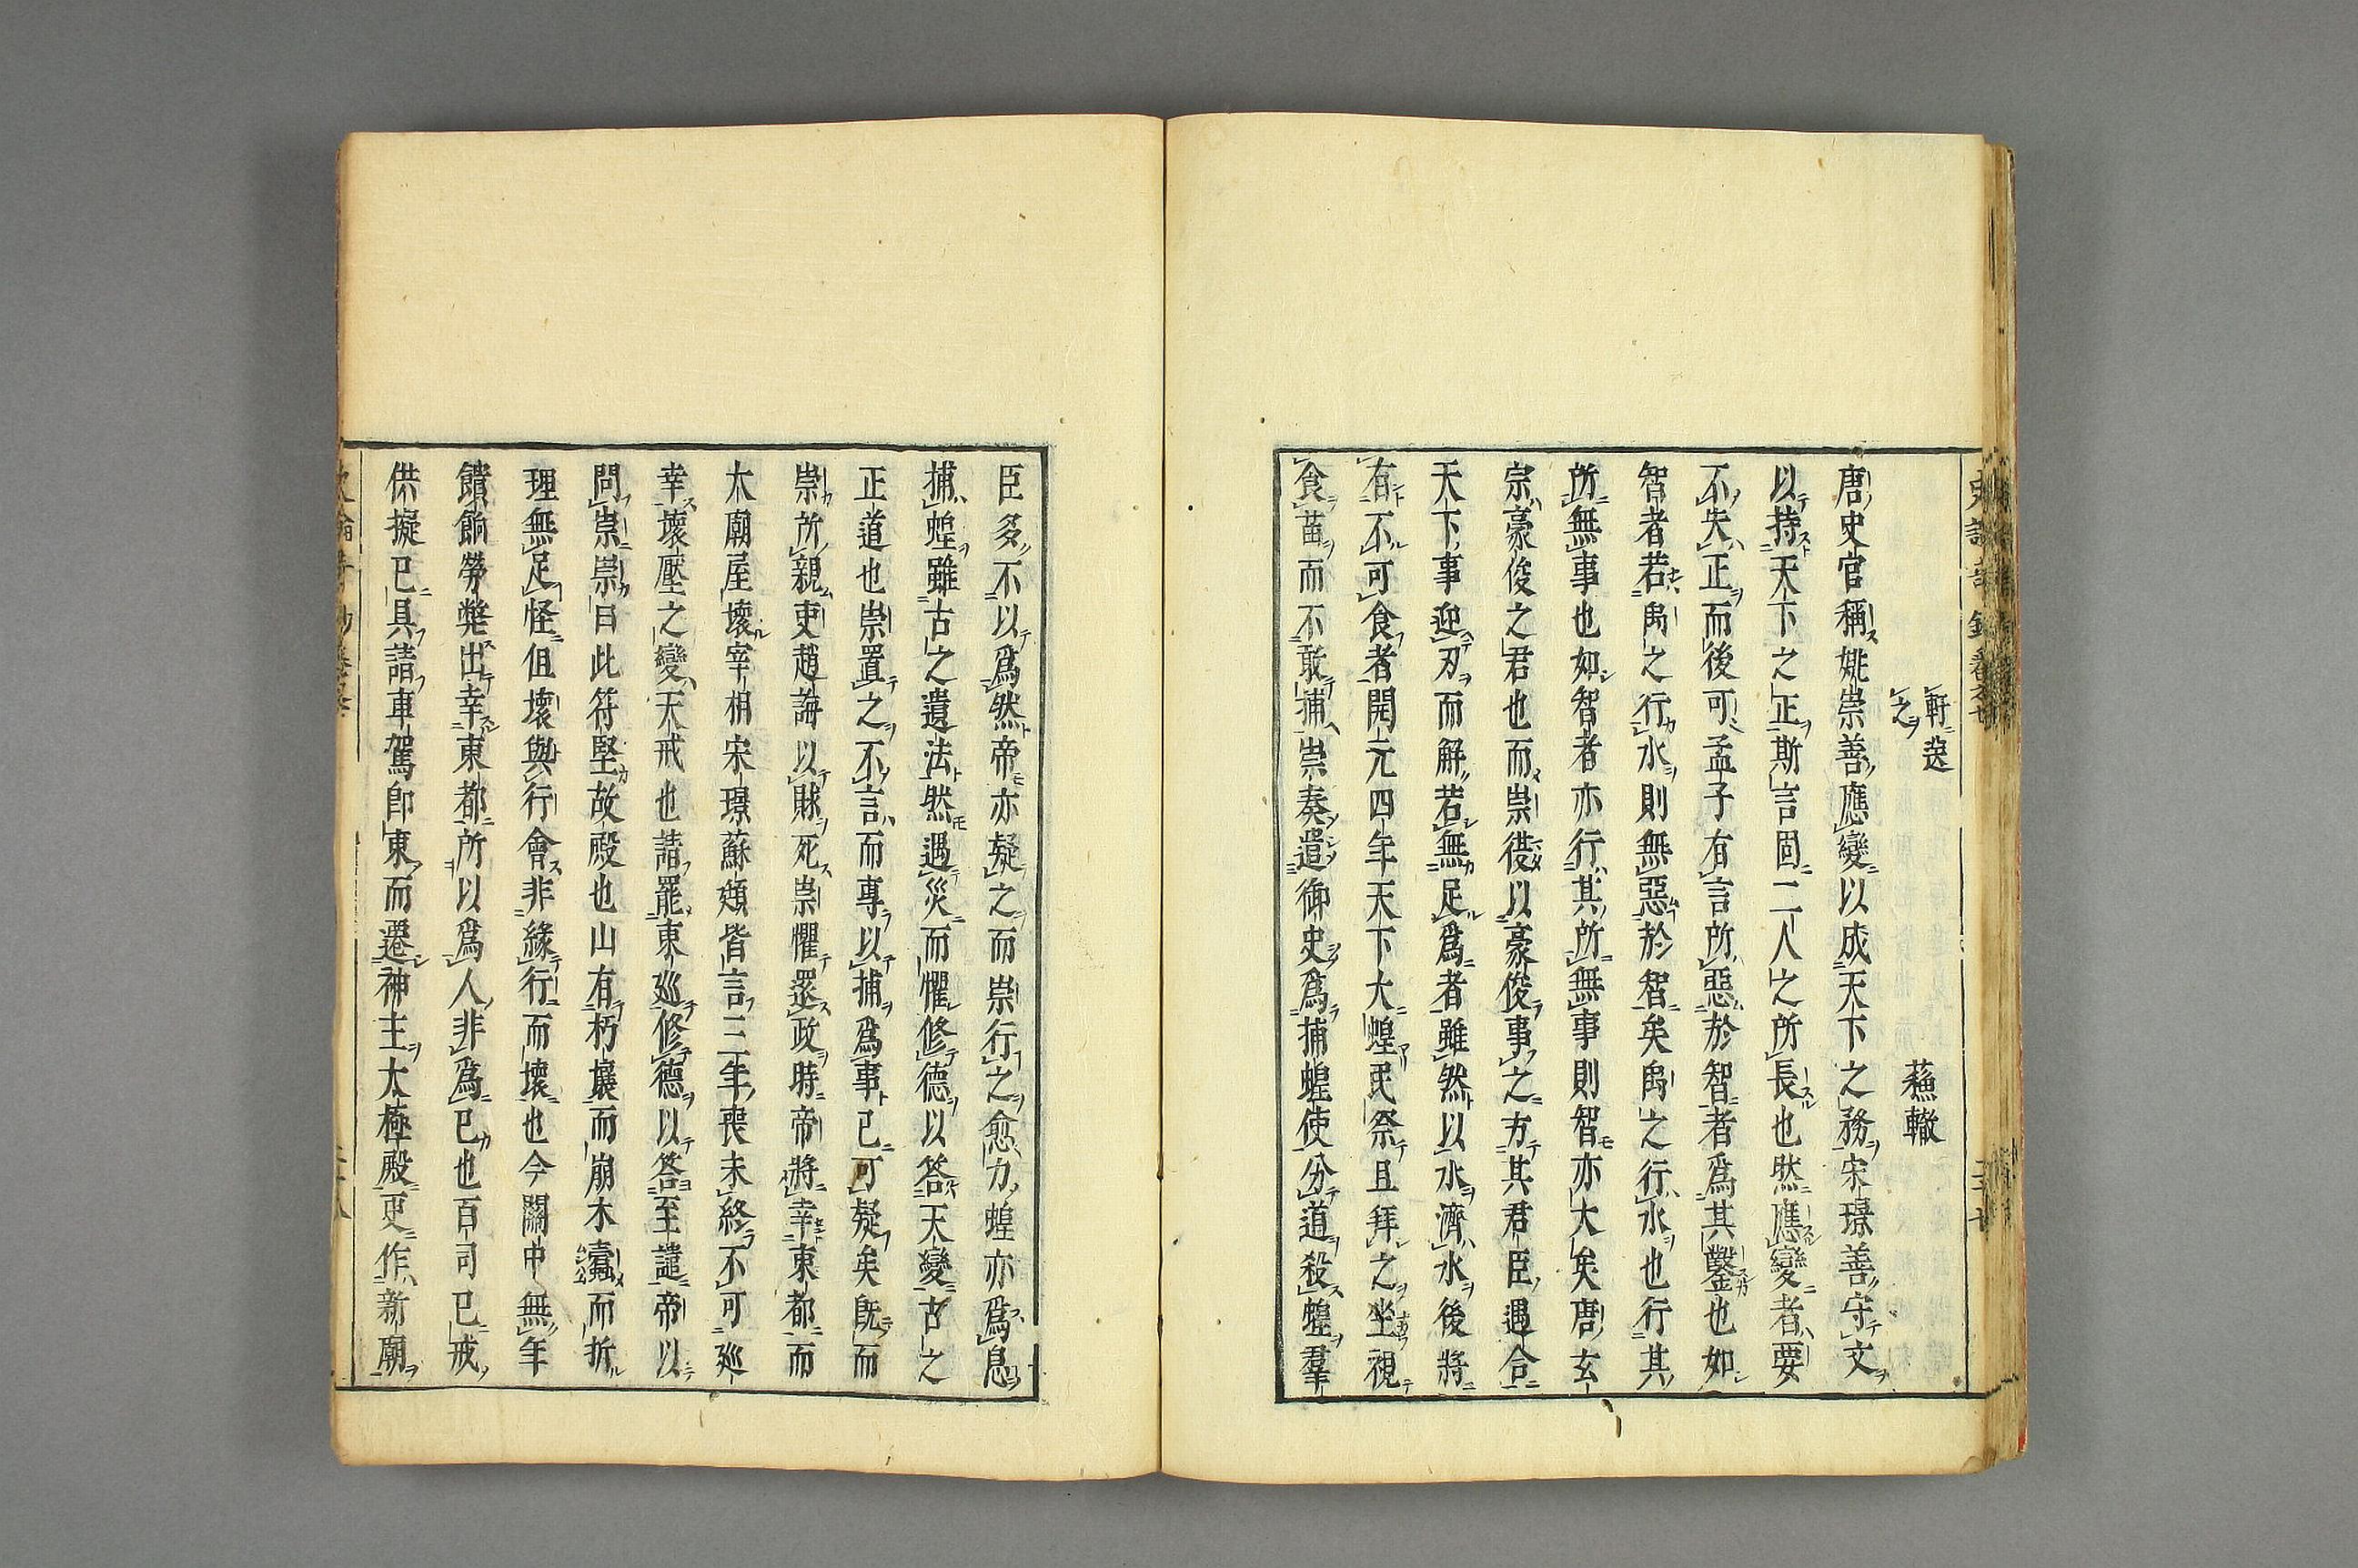 軒
之
蘇轍
唐史官稱姚崇善應變以成天下之務宋璟善守文
以持天下之正斯言固二人之所長也然應變者要
不失正而後可孟子有言所惡於智者爲其鑿也如
智者若禹之行水則無惡於智矣禹之行水也行其
所無事也如智者亦行其所無事則智亦大矣唐玄
宗豪俊之君也而崇復以豪俊事之方其君臣遇合
天下事迎刃而解若無足爲者雖然以水濟水後將
有不可食者開元四年天下大蝗民祭且拜之坐視
食苗而不敢捕崇奏遣御史爲捕蝗使分道殺蝗羣
臣多不以爲然帝亦疑之而崇行之愈力蝗亦爲息
捕蝗雖古之遺法然遇災而懼修德以答天變古之
正道也崇置之不言而專以捕爲事已可疑矣既而
崇所親吏趙誨以賕死崇懼還政時帝將幸東都而
太廟屋壞宰相宋璟蘇頲皆言三年喪未終不可巡
幸壞壓之變天戒也請罷東巡修德以答至譴帝以
問崇崇曰此符堅故殿也山有朽壤而崩木蠹而折
理無足怪但壞與行會非緣行而壞也今關中無年
饋餉勞弊出幸東都所以爲人非爲已也百司已戒
供擬已具請車駕卽東而遷神主太極殿更作新廟